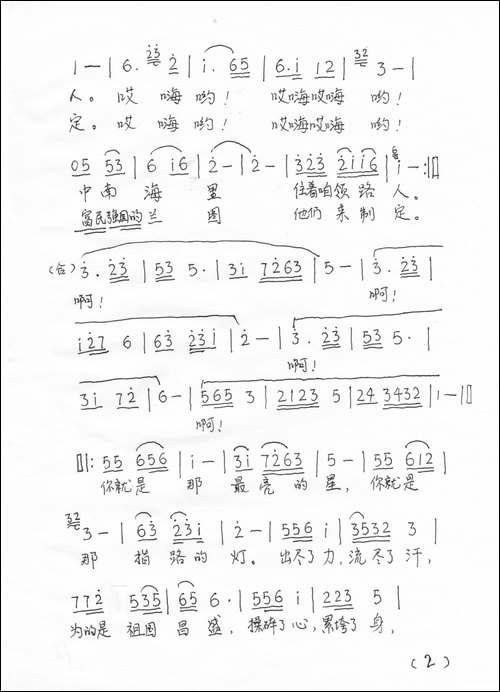 1 — | 6. 2̇3̇ 2̇ | i. 65 | 6.i 12 | 32 3 — |
人。哎 嗨 哟！ 哎嗨哎嗨 哟！
定。哎 嗨 哟！ 哎嗨哎嗨 哟！
05 53 | 6 i6 | 2̇ — | 2̇ — | 3̇2̇3̇ 2̇ii6 | i — :||
中南 海 里 住着咱领路 人。
富民强国的兰 图 他们 来制 定。
(合) 3̇. 2̇3̇ | 53 5. | 3i 72̇63 | 5 — | 3̇. 2̇3̇ |
啊！ 啊！
i2̇7 6 | 63̇ 2̇3̇i | 2̇ — | 3̇. 2̇3̇ | 53 5. |
啊！
3i 72̇ | 6 — | 565 3 | 2123 5 | 24 3432 | 1 — ||
啊！
||: 55 656 | i — | 3i 72̇63 | 5 — | 55 612 |
你就是 那 最 亮 的 星， 你就是
32 3 — | 63̇ 2̇3̇i | 2̇ — | 556 i | 3532 3 |
那 指 路 的 灯。 出尽了 力，流 尽了 汗，
772̇ 535 | 65 6. | 556 i | 223 5 |
为的是 祖国 昌 盛，操碎了 心，累垮了 身，
(2)